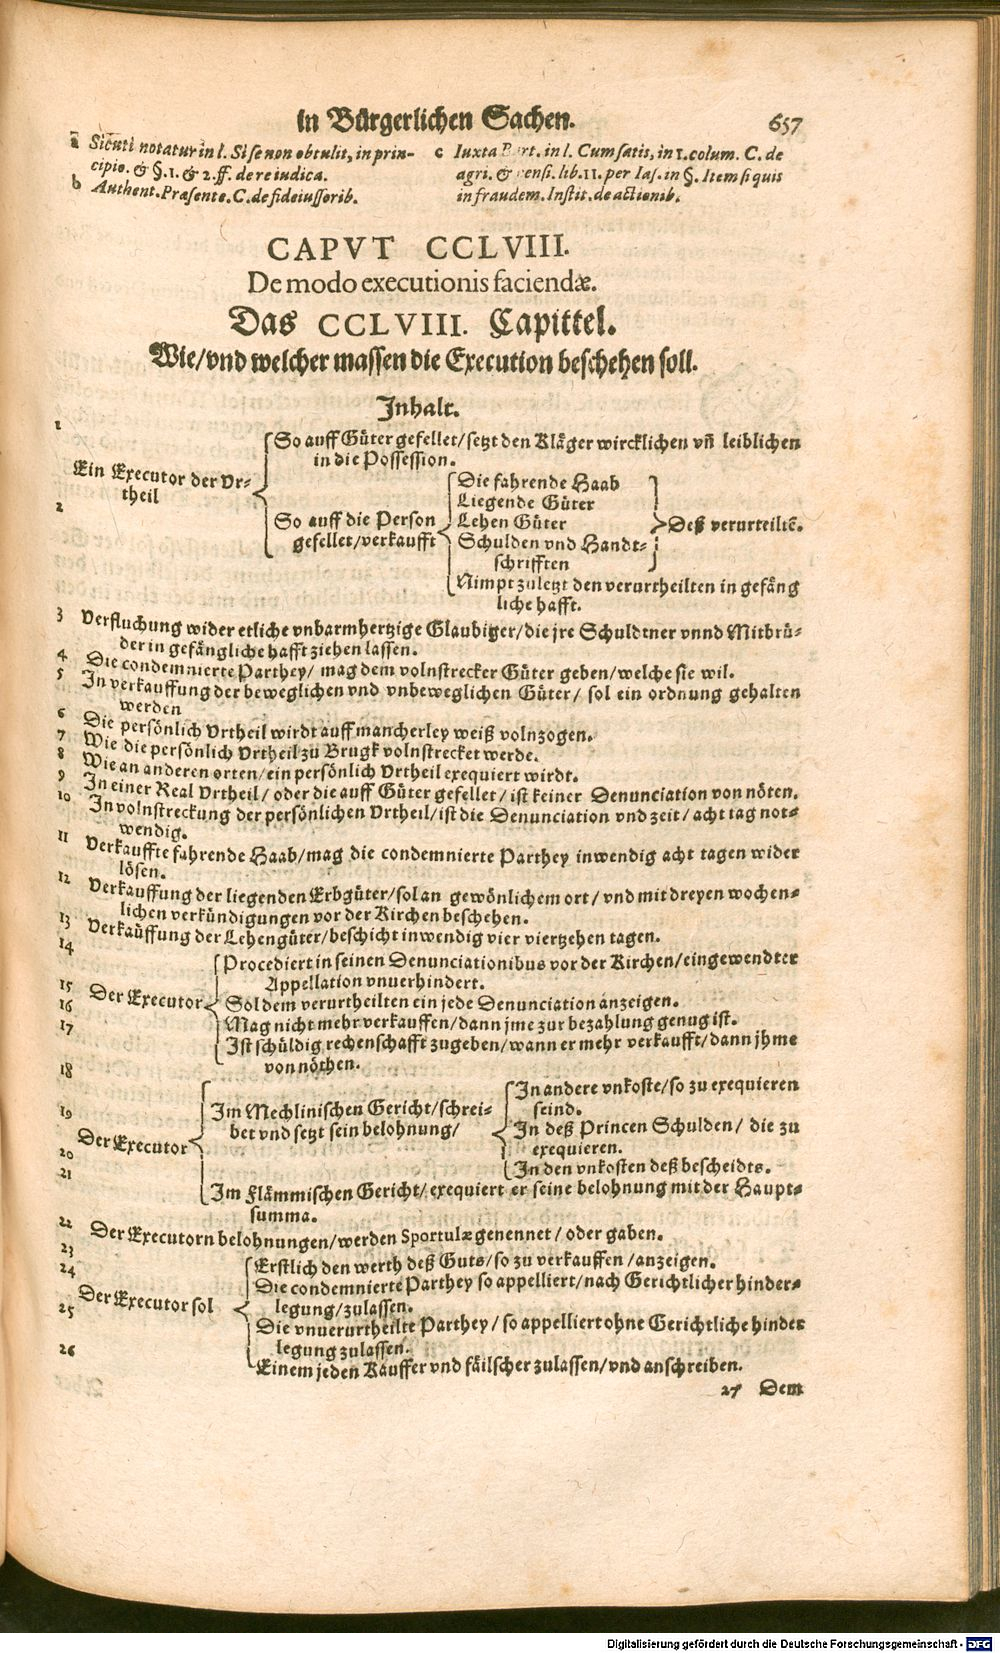 in Bürgerlichen Sachen. 657
a Sicuti notatur in l. Si se non obtulit, in prin-
cipio. & §. 1. & 2. ff. de re iudica.
b Authent. Præsente. C. de fideiussorib.
c Iuxta Bart. in l. Cum satis, in 1. colum. C. de
agri. & censi. lib. 11. per Ias. in §. Item si quis
in fraudem. Instit. de actionib.
CAPVT CCLVIII.
De modo executionis faciendæ.
Das CCLVIII. Capittel.
Wie/vnd welcher massen die Execution beschehen soll.
Inhalt.
1
Ein Executor der Vr-
theil
2
So auff Güter gefellet/setzt den Kläger wircklichen vn̄ leiblichen
in die Possession.
So auff die Person
gefellet/verkaufft
Die fahrende Haab
Liegende Güter
Lehen Güter
Schulden vnd Handt-
schrifften
Deß verurteiltē.
Nimpt zuletzt den verurtheilten in gefäng
liche hafft.
3 Verfluchung wider etliche vnbarmhertzige Glaubiger/die jre Schuldtner vnnd Mitbrü-
der in gefängliche hafft ziehen lassen.
4 Die condemnierte Parthey/ mag dem volnstrecker Güter geben/welche sie wil.
5 In verkauffung der beweglichen vnd vnbeweglichen Güter/ sol ein ordnung gehalten
werden
6 Die persönlich Vrtheil wirdt auff mancherley weiß volnzogen.
7 Wie die persönlich Vrtheil zu Brugk volnstrecket werde.
8 Wie an anderen orten/ein persönlich Vrtheil exequiert wirdt.
9 In einer Real Vrtheil/ oder die auff Güter gefellet/ist keiner Denunciation von nöten.
10 In volnstreckung der persönlichen Vrtheil/ist die Denunciation vnd zeit/ acht tag not-
wendig.
11 Verkauffte fahrende Haab/mag die condemnierte Parthey inwendig acht tagen wider
lösen.
12 Verkauffung der liegenden Erbgüter/sol an gewönlichem ort/ vnd mit dreyen wochen-
lichen verkündigungen vor der Kirchen beschehen.
13 Verkauffung der Lehengüter/beschicht inwendig vier viertzehen tagen.
14
15 Der Executor
16
17
Procediert in seinen Denunciationibus vor der Kirchen/eingewendter
Appellation vnuerhindert.
Sol dem verurtheilten ein jede Denunciation anzeigen.
Mag nicht mehr verkauffen/dann jme zur bezahlung genug ist.
Ist schüldig rechenschafft zugeben/wann er mehr verkaufft/dann jhme
von nöthen.
18
19
Der Executor
20
21
Im Mechlinischen Gericht/schrei-
bet vnd setzt sein belohnung/
In andere vnkoste/so zu exequieren
seind.
In deß Princen Schulden/ die zu
exequieren.
In den vnkosten deß bescheidts.
Im Flämmischen Gericht/exequiert er seine belohnung mit der Haupt-
summa.
22 Der Executorn belohnungen/werden Sportulæ genennet/oder gaben.
23
24
Der Executor sol
25
26
Erstlich den werth deß Guts/so zu verkauffen/anzeigen.
Die condemnierte Parthey so appelliert/nach Gerichtlicher hinder-
legung/zulassen.
Die vnuerurtheilte Parthey/so appelliert ohne Gerichtliche hinder
legung zulassen.
Einem jeden Kauffer vnd fäilscher zulassen/vnd anschreiben.
27 Dem
Digitalisierung gefördert durch die Deutsche Forschungsgemeinschaft - DFG